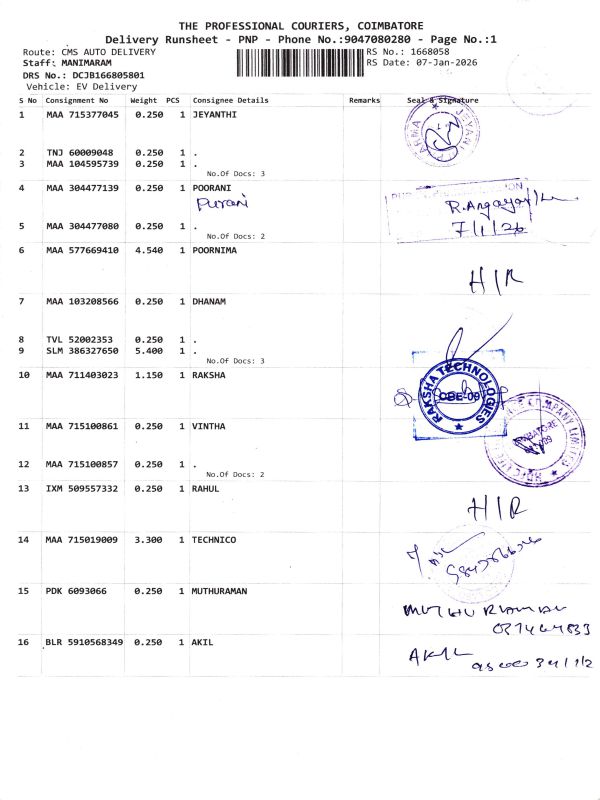 THE PROFESSIONAL COURIERS, COIMBATORE
Delivery Runsheet - PNP - Phone No.:9047080280 - Page No.:1
Route: CMS AUTO DELIVERY
RS No.: 1668058
Staff: MANIMARAM
RS Date: 07-Jan-2026
DRS No.: DCJB166805801
Vehicle: EV Delivery
S No Consignment No Weight PCS Consignee Details Remarks Seal & Signature
1 MAA 715377045 0.250 1 JEYANTHI
2 TNJ 60009048 0.250 1 .
3 MAA 104595739 0.250 1 .
No.Of Docs: 3
4 MAA 304477139 0.250 1 POORANI
Purani
7/1/26
5 MAA 304477080 0.250 1 .
No.Of Docs: 2
6 MAA 577669410 4.540 1 POORNIMA
H/R
7 MAA 103208566 0.250 1 DHANAM
8 TVL 52002353 0.250 1 .
9 SLM 386327650 5.400 1 .
No.Of Docs: 3
10 MAA 711403023 1.150 1 RAKSHA
RAKSHA TECHNOLOGIES
CBE-09
11 MAA 715100861 0.250 1 VINTHA
COMPANY LIMITED
12 MAA 715100857 0.250 1 .
No.Of Docs: 2
13 IXM 509557332 0.250 1 RAHUL
H/R
14 MAA 715019009 3.300 1 TECHNICO
15 PDK 6093066 0.250 1 MUTHURAMAN
16 BLR 5910568349 0.250 1 AKIL